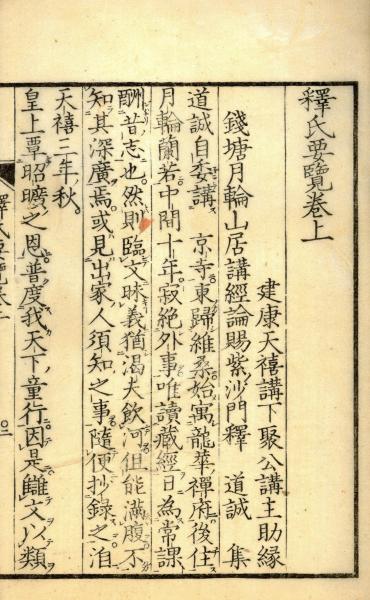 釋氏要覽卷上
建康天禧講下聚公講主助緣
錢塘月輪山居講經論賜紫沙門釋 道誠 集
道誠自委講 京寺東歸維桑始寓龍華禪府後住
月輪蘭若中間十年寂絕外事唯讀藏經日為常課
酬昔志也然則臨文昧義猶渴夫飲河但能滿腹不
知其深廣焉或見出家人須知之事隨便抄錄之洎
天禧三年秋
皇上覃昭曠之恩普度我天下童行因是讎文以類